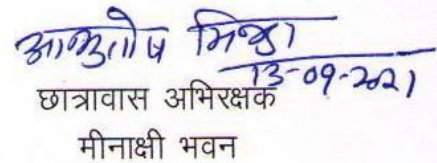 आशुतोष मिश्रा
13-09-2021
छात्रावास अभिरक्षक
मीनाक्षी भवन